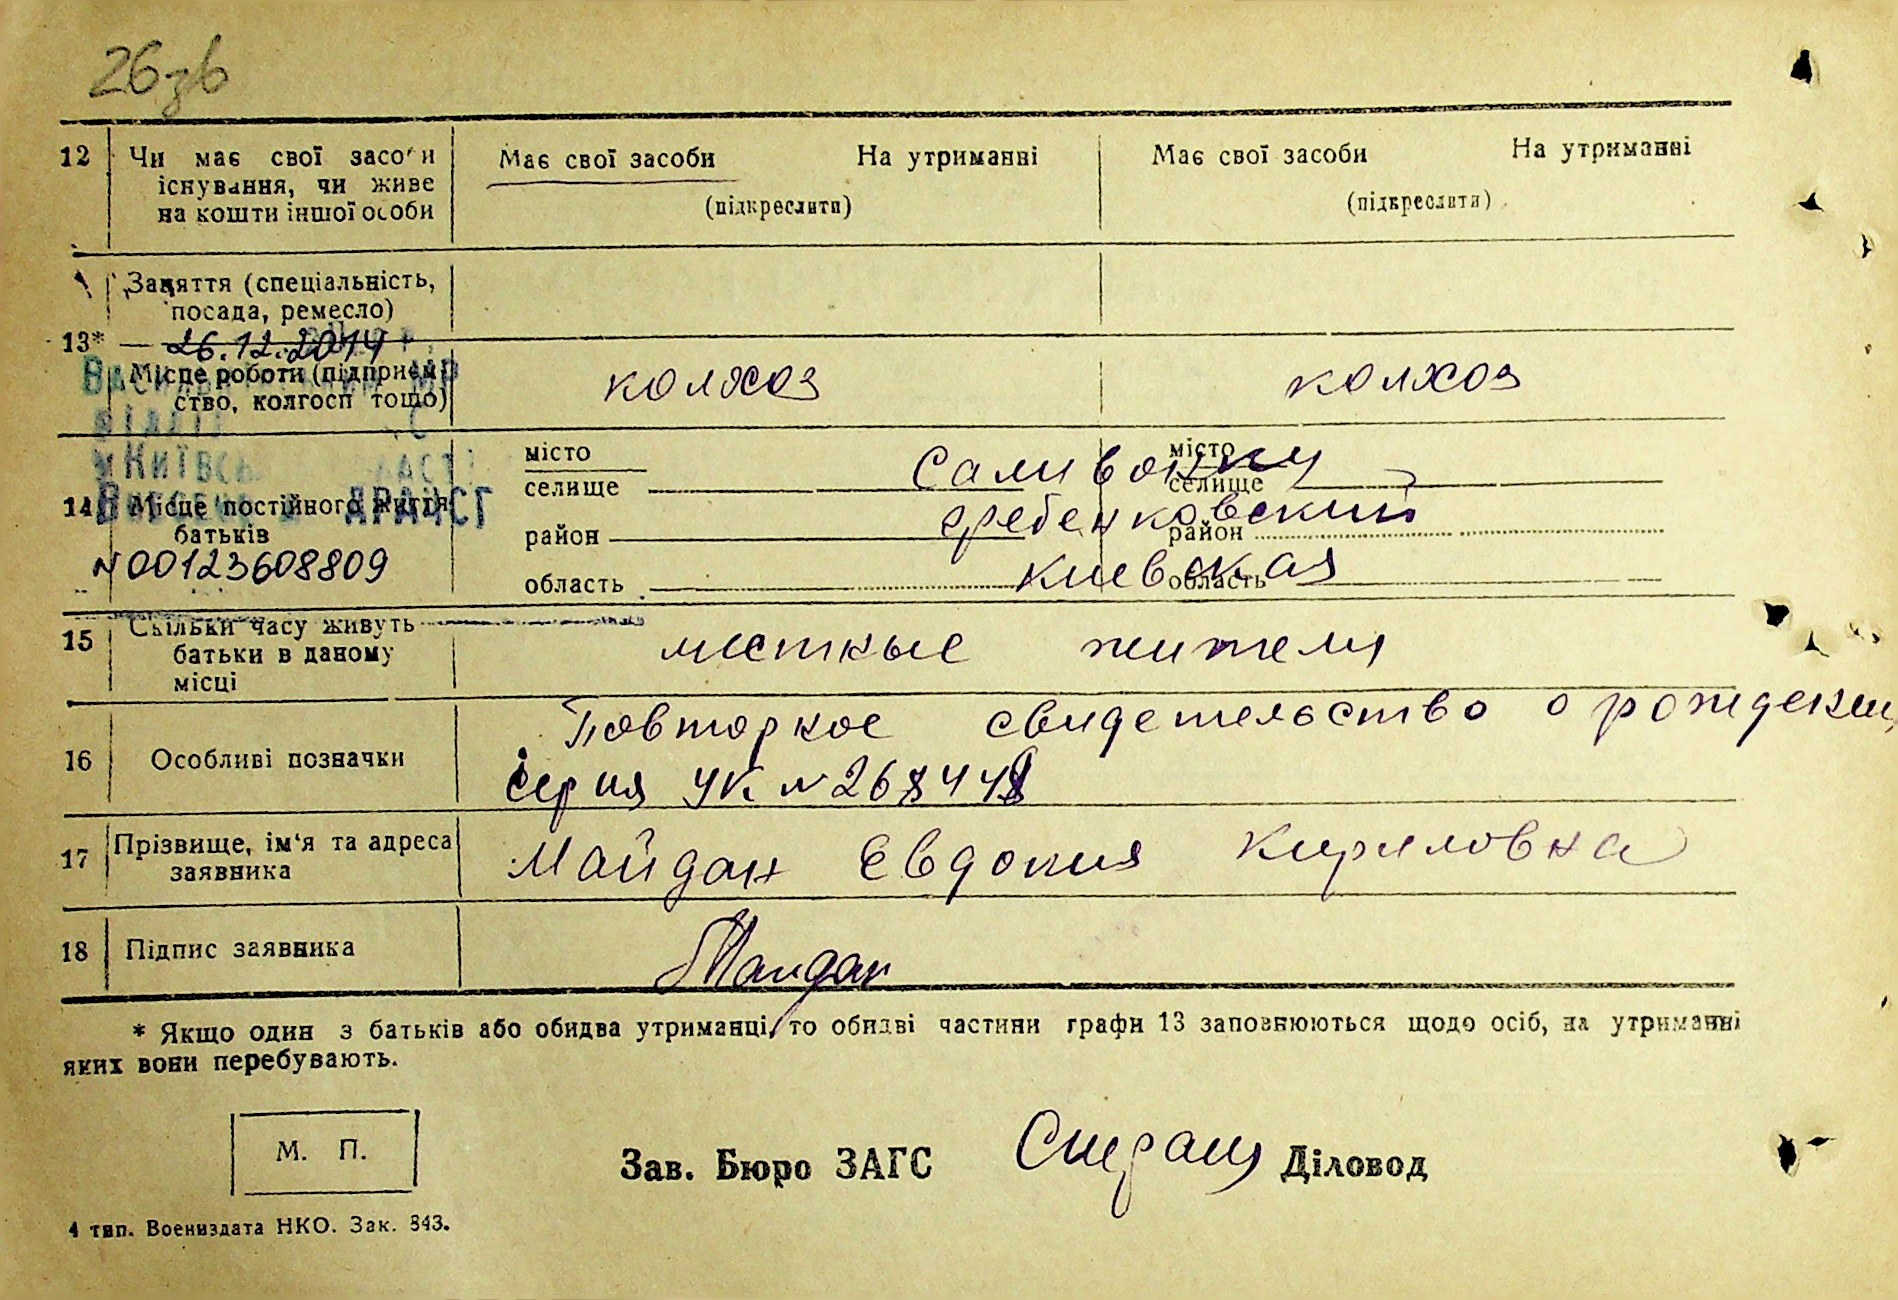 26зв
12 Чи має свої засоби Має свої засоби На утриманні Має свої засоби На утриманні
існування, чи живе
на кошти іншої особи (підкреслити) (підкреслити)
Заняття (спеціальність,
посада, ремесло)
13*
26.12.2014
Місце роботи (підприєм колхоз колхоз
ство, колгосп тощо)
місто місто
селище Саливонки селище
14 Місце постійного життя ДРАЦСГ
батьків район гребенковский район
N00123608809
область киевская область
15 Скільки часу живуть
батьки в даному местные жители
місці
Повторное свидетельство о рождении
16 Особливі позначки
серия УК N
17 Прізвище, ім'я та адреса Майдан Євдокия Кириловна
заявника
18 Підпис заявника Майдан
* Якщо один з батьків або обидва утриманці, то обидві частини графи 13 заповнюються щодо осіб, на утриманні
яких вони перебувають.
М. П.
Зав. Бюро ЗАГС Діловод
4 тип. Воениздата НКО. Зак. 843.